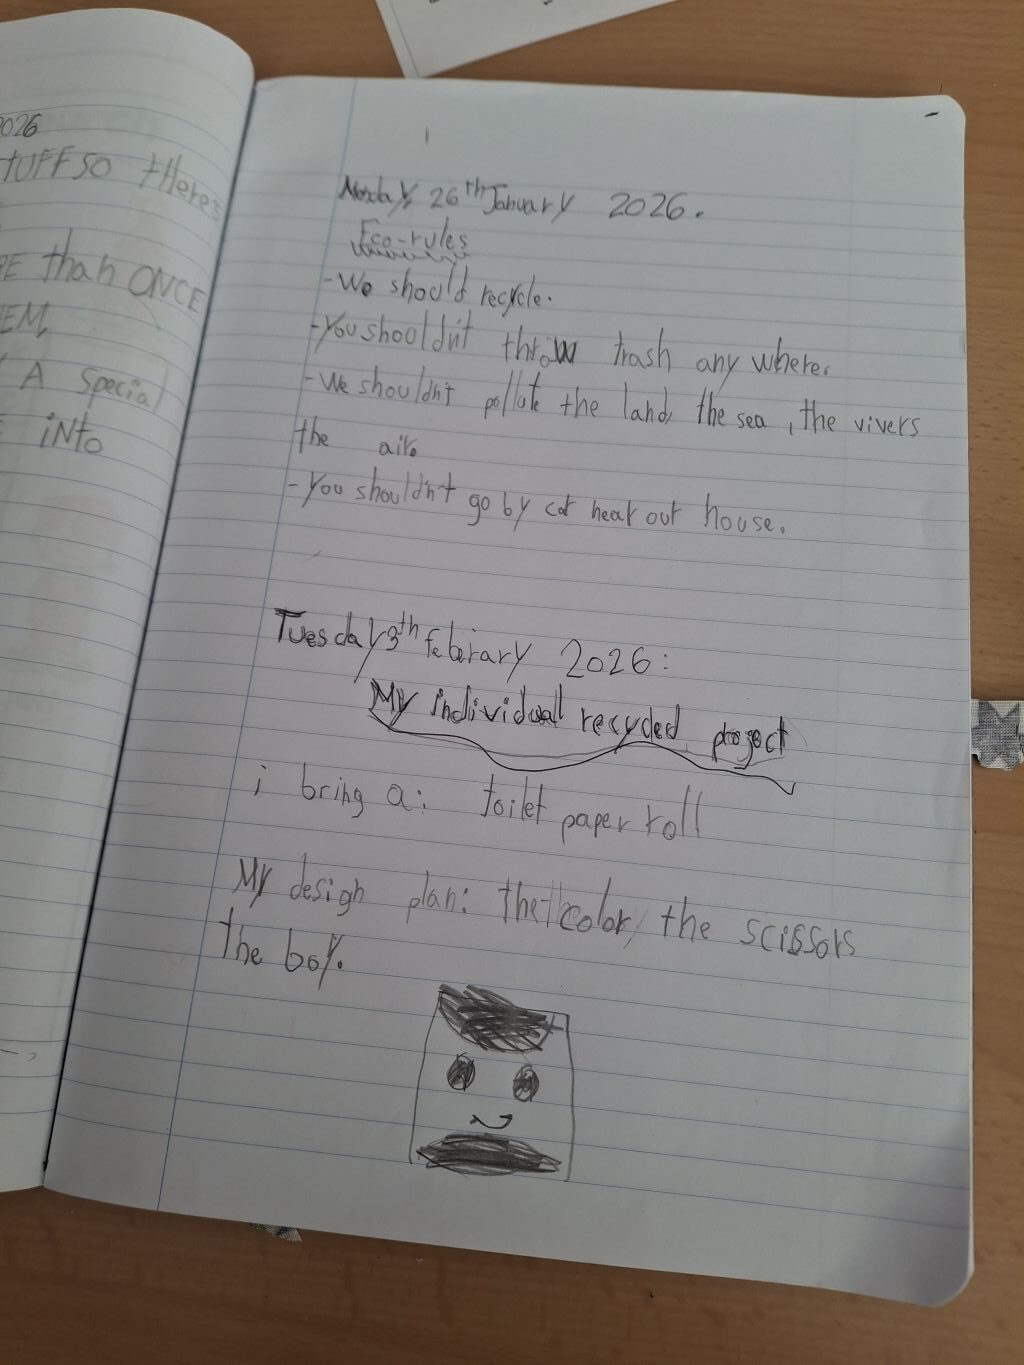 026
tUFF SO tHere's
E than ONCE
EM,
A special
iNto
Monday, 26th January 2026.
Eco-rules
-We should recycle.
-You shouldn't throw trash any where.
-We shouldn't pollute the land, the sea, the vivers
the air.
-You shouldn't go by car near out house.
Tuesday 3th febrirary 2026:
My individual recycled project
i bring a: toilet paper roll
My design plan: the color, the scissors
the boy.